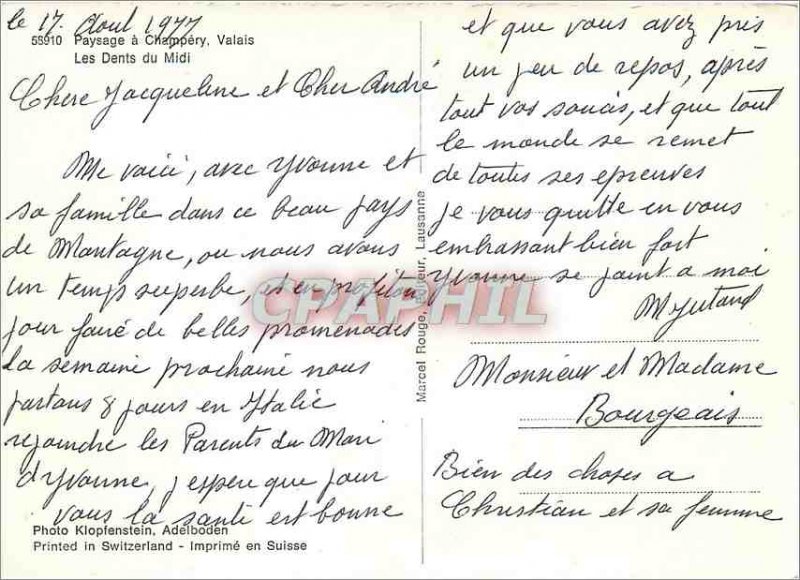 le 17. Aout 1977
58910 Paysage à Champéry, Valais
Les Dents du Midi
Chere Jacqueline et Cher André
Me voici, avec Yvonne et
sa famille dans ce beau pays
de Montagne, ou nous avons
un temps superbe, et en profitons
pour faire de belles promenades
la semaine prochaine nous
partons 8 jours en Italie
rejoindre les Parents du Mari
d'Yvonne, j'espere que pour
vous la santé est bonne
Photo Klopfenstein, Adelboden
Printed in Switzerland - Imprimé en Suisse
Marcel Rouge, Editeur, Lausanne
et que vous avez pris
un peu de repos, après
tout vos soucis, et que tout
le monde se remet
de toutes ses epreuves
je vous quitte en vous
embrassant bien fort
Yvonne se joint a moi
Monsieur et Madame
Bourgeais
Bien des choses a
Christian et sa femme
CPAPHIL